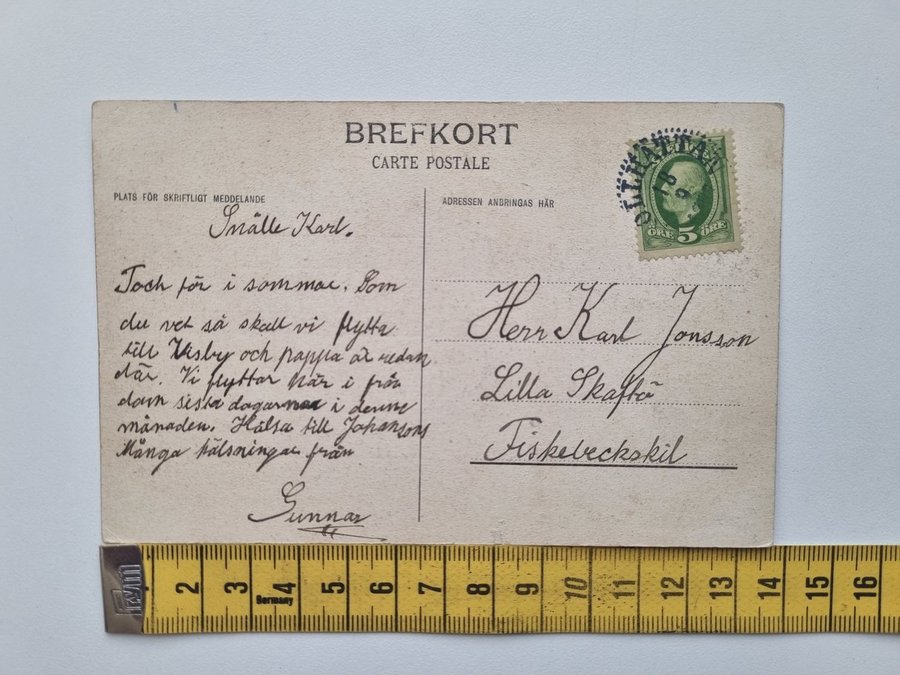 BREFKORT
CARTE POSTALE
PLATS FÖR SKRIFTLIGT MEDDELANDE
ADRESSEN ANBRINGAS HÄR
Snälle Karl.
Tack för i sommar. Som
du vet så skall vi flytta
till Visby och pappa är redan
där. Vi flyttar här i från
dom sista dagarna i denne
månaden. Hälsa till Johansons
Många hälsningar från
Gunnar
Herr Karl Jonsson
Lilla Skaftö
Fiskebeckskil
ÖRE 5 ÖRE
18
2 3 4 5 6 7 8 9 10 11 12 13 14 15 16
Germany